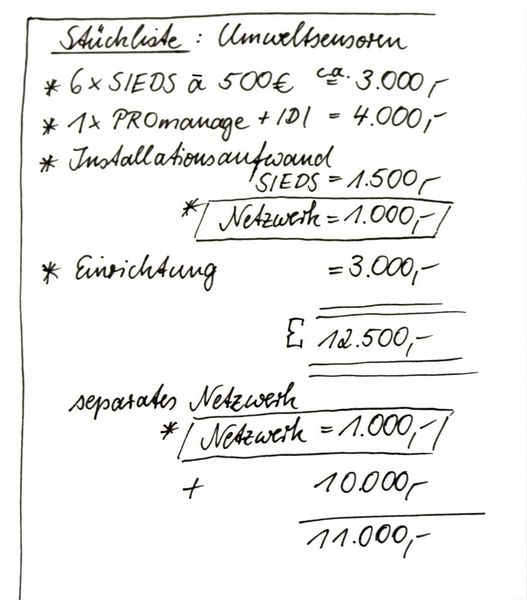 Stückliste : Umweltsensoren
* 6x SIEDS à 500€ ca. 3.000,-
* 1x PROmanage + IDI = 4.000,-
* Installationsaufwand
SIEDS = 1.500,-
* Netzwerk = 1.000,-
* Einrichtung = 3.000,-
Σ 12.500,-
separates Netzwerk
* Netzwerk = 1.000,-
+ 10.000,-
11.000,-